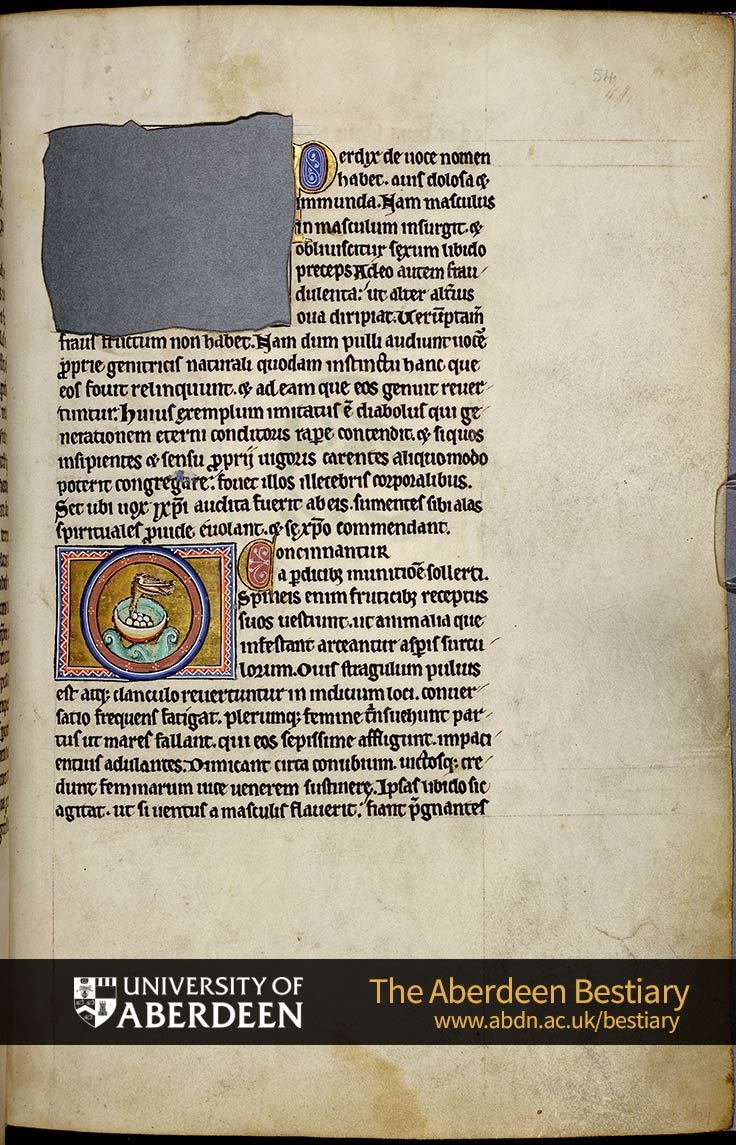 54
Perdix de uoce nomen
habet. auis dolosa &
immunda. Nam masculus
in masculum insurgit. &
obliuiscitur sexum libido
preceps Adeo autem frau
dulenta: ut alter alt̄ius
oua diripiat. Uerūptam̄
fraus fructum non habet. Nam dum pulli audiunt uocē
ꝓprie genitricis naturali quodam instinctu hanc que
eos fouit relinquunt. & ad eam que eos genuit reuer
tuntur. Huius exemplum imitatus ē diabolus qui ge
nerationem eterni conditoris raꝑe contendit. & si quos
insipientes & sensu ꝓprij uigoris carentes aliquo modo
poterit congregare: fouet illos illecebris corporalibus.
Set ubi uox xp̄i audita fuerit ab eis. sumentes sibi alas
spirituales ꝓuide euolant. & se xp̄o commendant.
Concinnantur
a ꝑdicibꝫ munitiōe sollerti.
Spineis enim fruticibꝫ receptus
suos uestiunt. ut animalia que
infestant arceantur asp̄is surcu
lorum. Ouis stragulum puluis
est atqꝫ clanculo reuertuntur in indicium loci. conuer
satio frequens fatigat. plerumqꝫ femine t̄nsuehunt par
tus ut mares fallant. qui eos sepissime affligunt. impaci
entius adulantes. Dimicant circa conubium. uictosqꝫ cre
dunt feminarum uice uenerem sustinere. Ipsas libido sic
agitat. ut si uentus a masculis flauerit: fiant p̄gnantes
UNIVERSITY OF
ABERDEEN
The Aberdeen Bestiary
www.abdn.ac.uk/bestiary